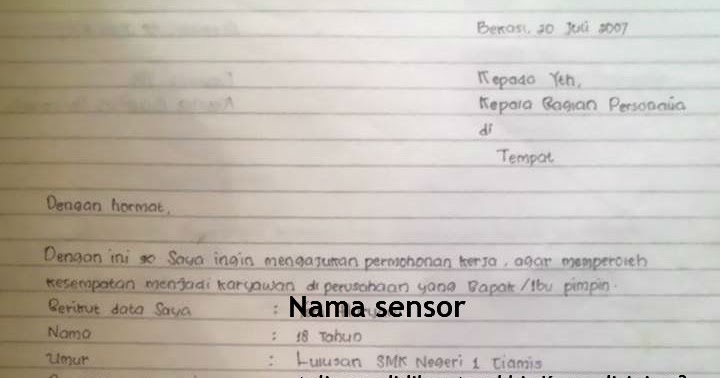 Bekasi, 20 Juli 2007
Kepada Yth,
Kepala Bagian Personalia
di
Tempat
Dengan hormat,
Dengan ini Saya ingin mengajukan permohonan kerja, agar memperoleh
kesempatan menjadi karyawan di perusahaan yang Bapak/Ibu pimpin.
Berikut data Saya : Nama sensor
Nama : 18 Tahun
Umur : Lulusan SMK Negeri 1 Ciamis